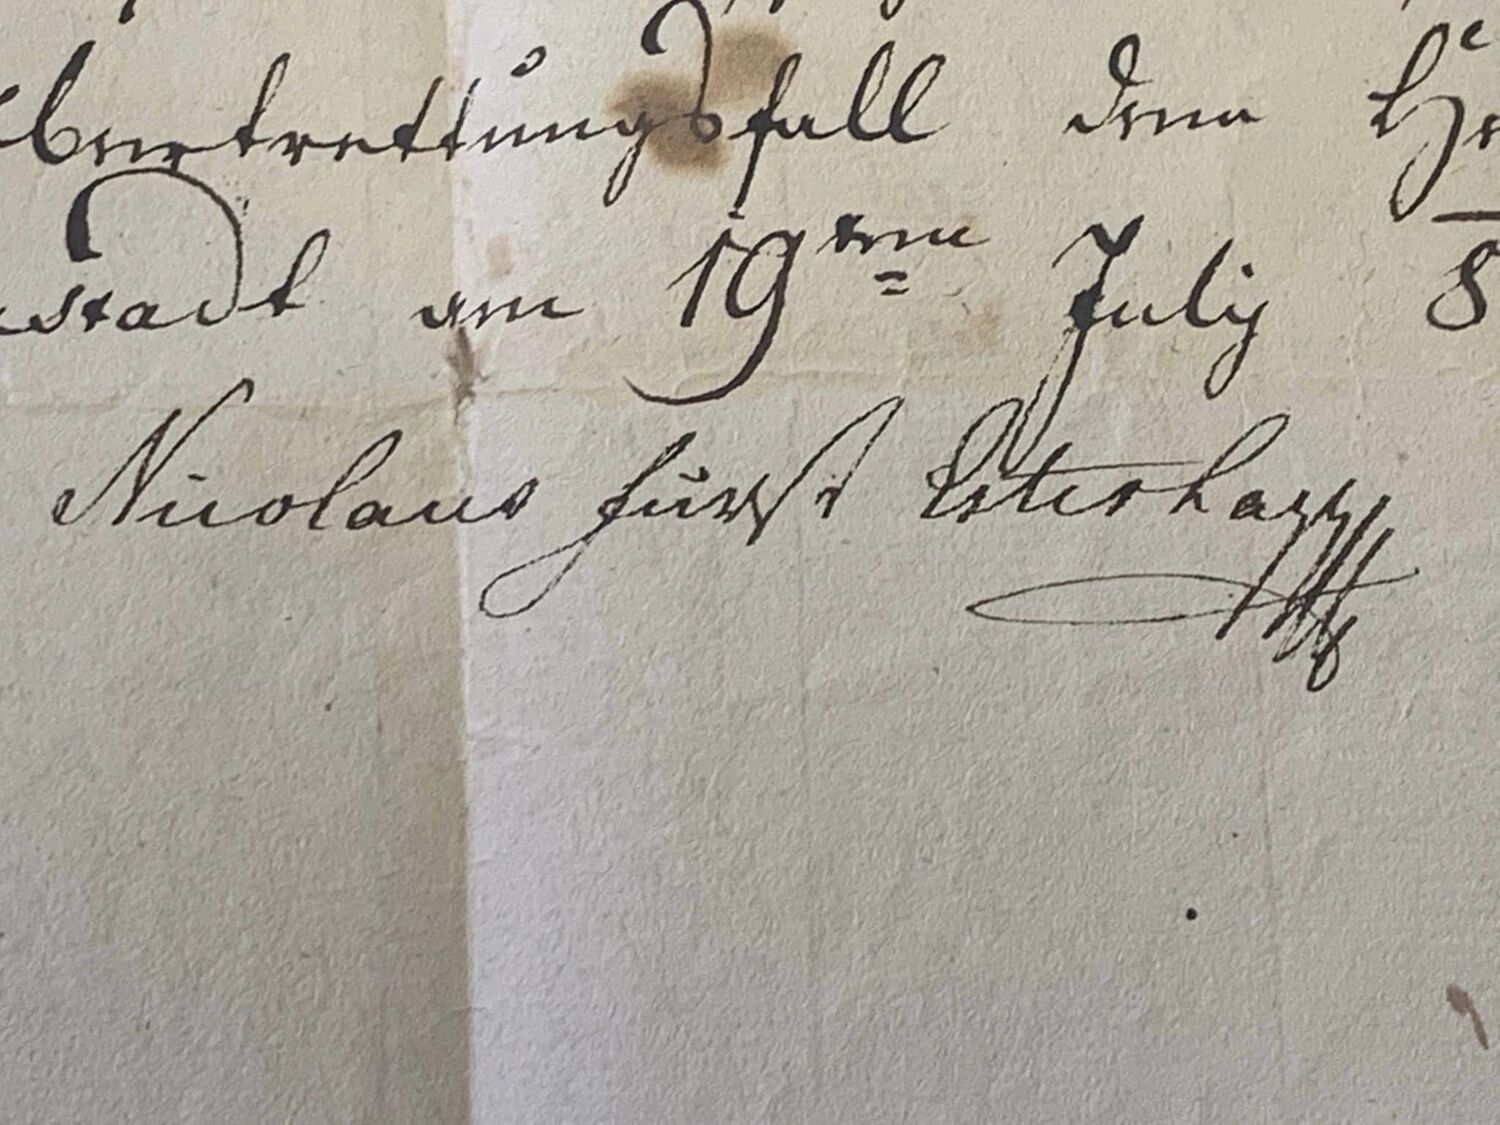 bertrettungsfall dem H
stadt am 19ten July 8
Nicolaus fürst Esterhazy